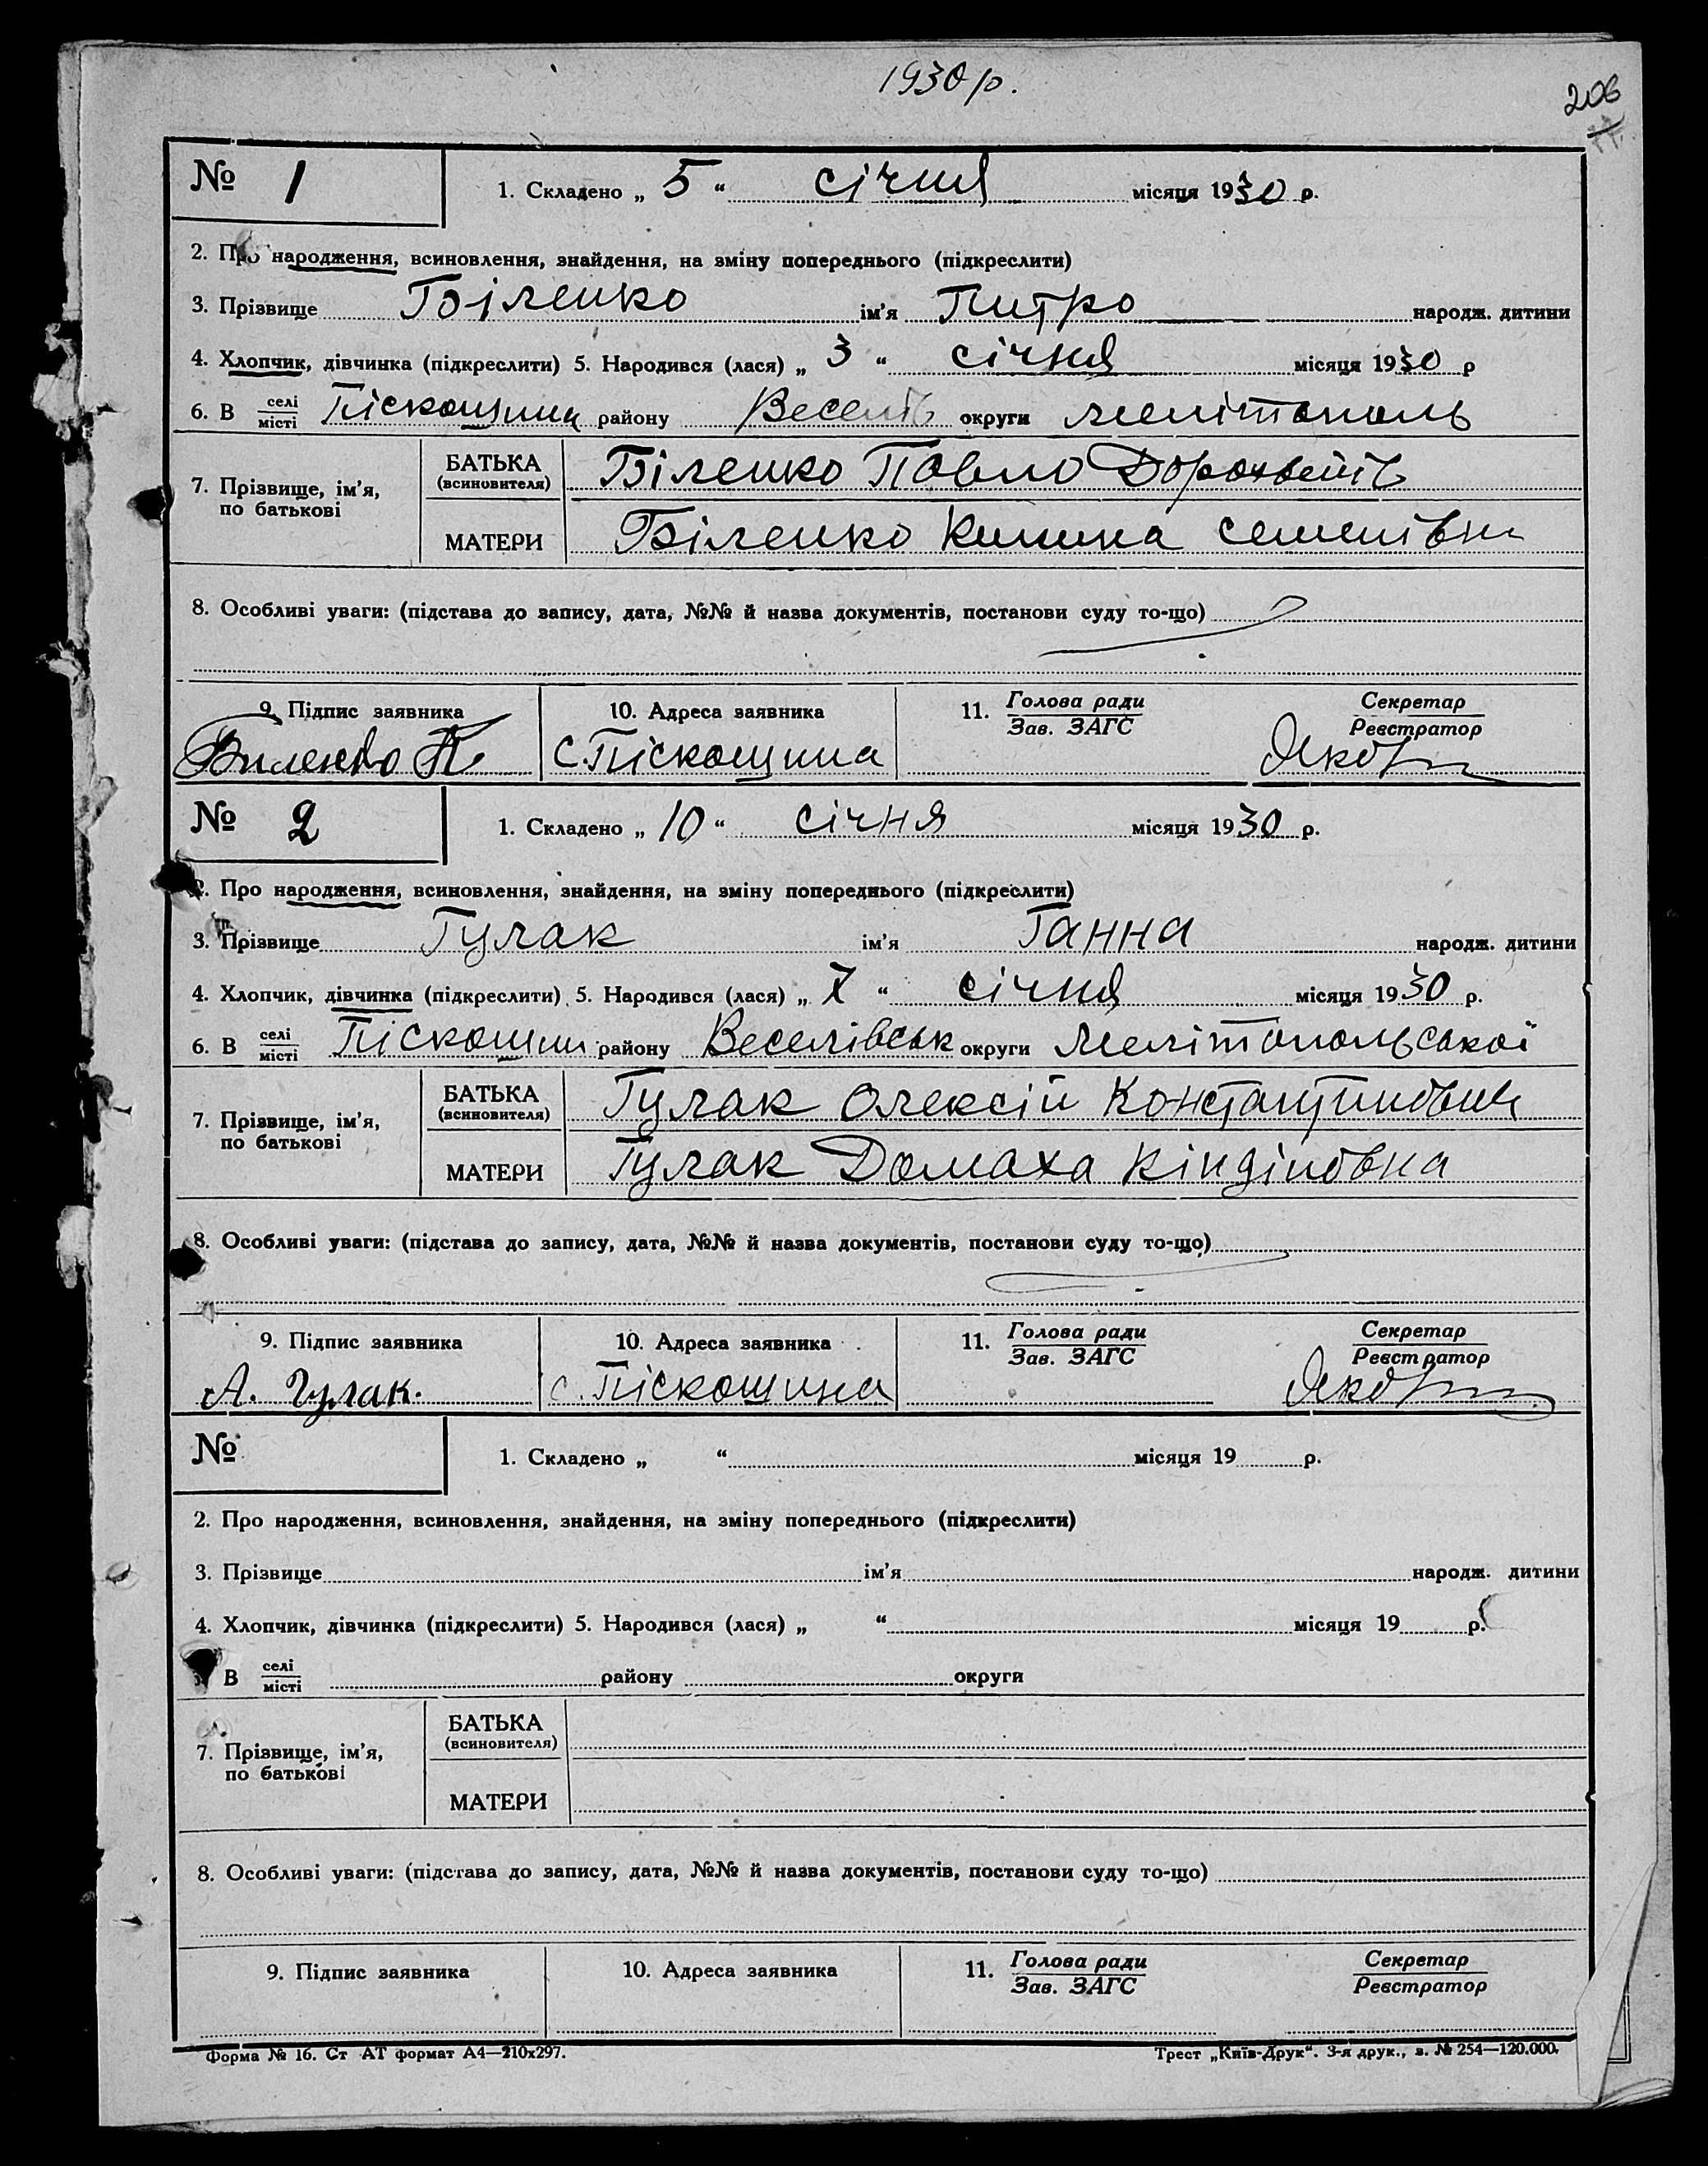 1930 р.
206
№ 1
1. Складено „ 5 “ січня місяця 1930 р.
2. Про народження, всиновлення, знайдення, на зміну попереднього (підкреслити)
3. Прізвище Біленко ім'я Питро народж. дитини
4. Хлопчик, дівчинка (підкреслити) 5. Народився (лася) „ 3 “ січня місяця 1930 р
6. В селі місті Піскошина району Веселів округи Мелітополь
7. Прізвище, ім'я, по батькові
БАТЬКА (всиновителя) Біленко Павло
МАТЕРИ Біленко Килина Семенівна
8. Особливі уваги: (підстава до запису, дата, №№ й назва документів, постанови суду то-що)
9. Підпис заявника 10. Адреса заявника 11. Голова ради Зав. ЗАГС Секретар Реєстратор
Биленко П с. Піскошина
№ 2
1. Складено „ 10 “ січня місяця 1930 р.
2. Про народження, всиновлення, знайдення, на зміну попереднього (підкреслити)
3. Прізвище Гулак ім'я Ганна народж. дитини
4. Хлопчик, дівчинка (підкреслити) 5. Народився (лася) „ 7 “ січня місяця 1930 р.
6. В селі місті Піскошин району Веселівськ округи Мелітопольської
7. Прізвище, ім'я, по батькові
БАТЬКА (всиновителя) Гулак Олексій Константинович
МАТЕРИ Гулак Домаха Кіндіновна
8. Особливі уваги: (підстава до запису, дата, №№ й назва документів, постанови суду то-що)
9. Підпис заявника 10. Адреса заявника 11. Голова ради Зав. ЗАГС Секретар Реєстратор
А. Гулак. с. Піскошина
№
1. Складено „ “ місяця 19 р.
2. Про народження, всиновлення, знайдення, на зміну попереднього (підкреслити)
3. Прізвище ім'я народж. дитини
4. Хлопчик, дівчинка (підкреслити) 5. Народився (лася) „ “ місяця 19 р.
В селі місті району округи
7. Прізвище, ім'я, по батькові
БАТЬКА (всиновителя)
МАТЕРИ
8. Особливі уваги: (підстава до запису, дата, №№ й назва документів, постанови суду то-що)
9. Підпис заявника 10. Адреса заявника 11. Голова ради Зав. ЗАГС Секретар Реєстратор
Форма № 16. Ст АТ формат А4—210х297. Трест „Київ-Друк“. 3-я друк., з. № 254—120.000.